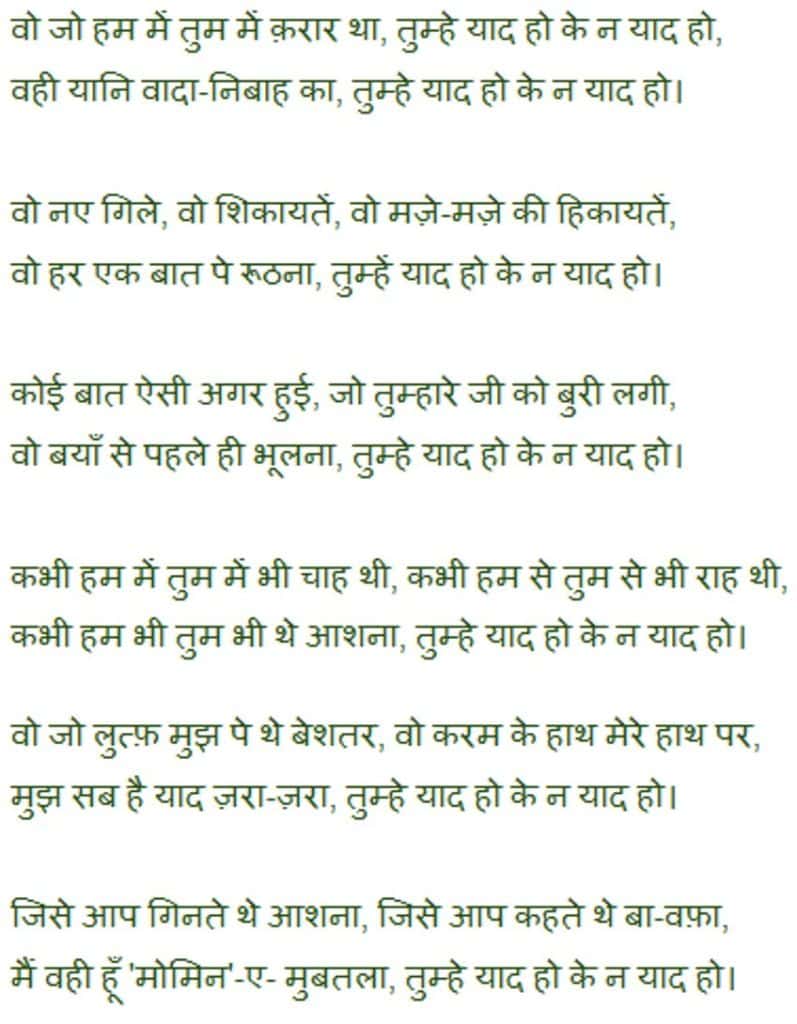 वो जो हम में तुम में क़रार था, तुम्हे याद हो के न याद हो,
वही यानि वादा-निबाह का, तुम्हे याद हो के न याद हो।
वो नए गिले, वो शिकायतें, वो मज़े-मज़े की हिकायतें,
वो हर एक बात पे रूठना, तुम्हें याद हो के न याद हो।
कोई बात ऐसी अगर हुई, जो तुम्हारे जी को बुरी लगी,
वो बयाँ से पहले ही भूलना, तुम्हे याद हो के न याद हो।
कभी हम में तुम में भी चाह थी, कभी हम से तुम से भी राह थी,
कभी हम भी तुम भी थे आशना, तुम्हे याद हो के न याद हो।
वो जो लुत्फ़ मुझ पे थे बेशतर, वो करम के हाथ मेरे हाथ पर,
मुझ सब है याद ज़रा-ज़रा, तुम्हे याद हो के न याद हो।
जिसे आप गिनते थे आशना, जिसे आप कहते थे बा-वफ़ा,
मैं वही हूँ 'मोमिन'-ए- मुबतला, तुम्हे याद हो के न याद हो।